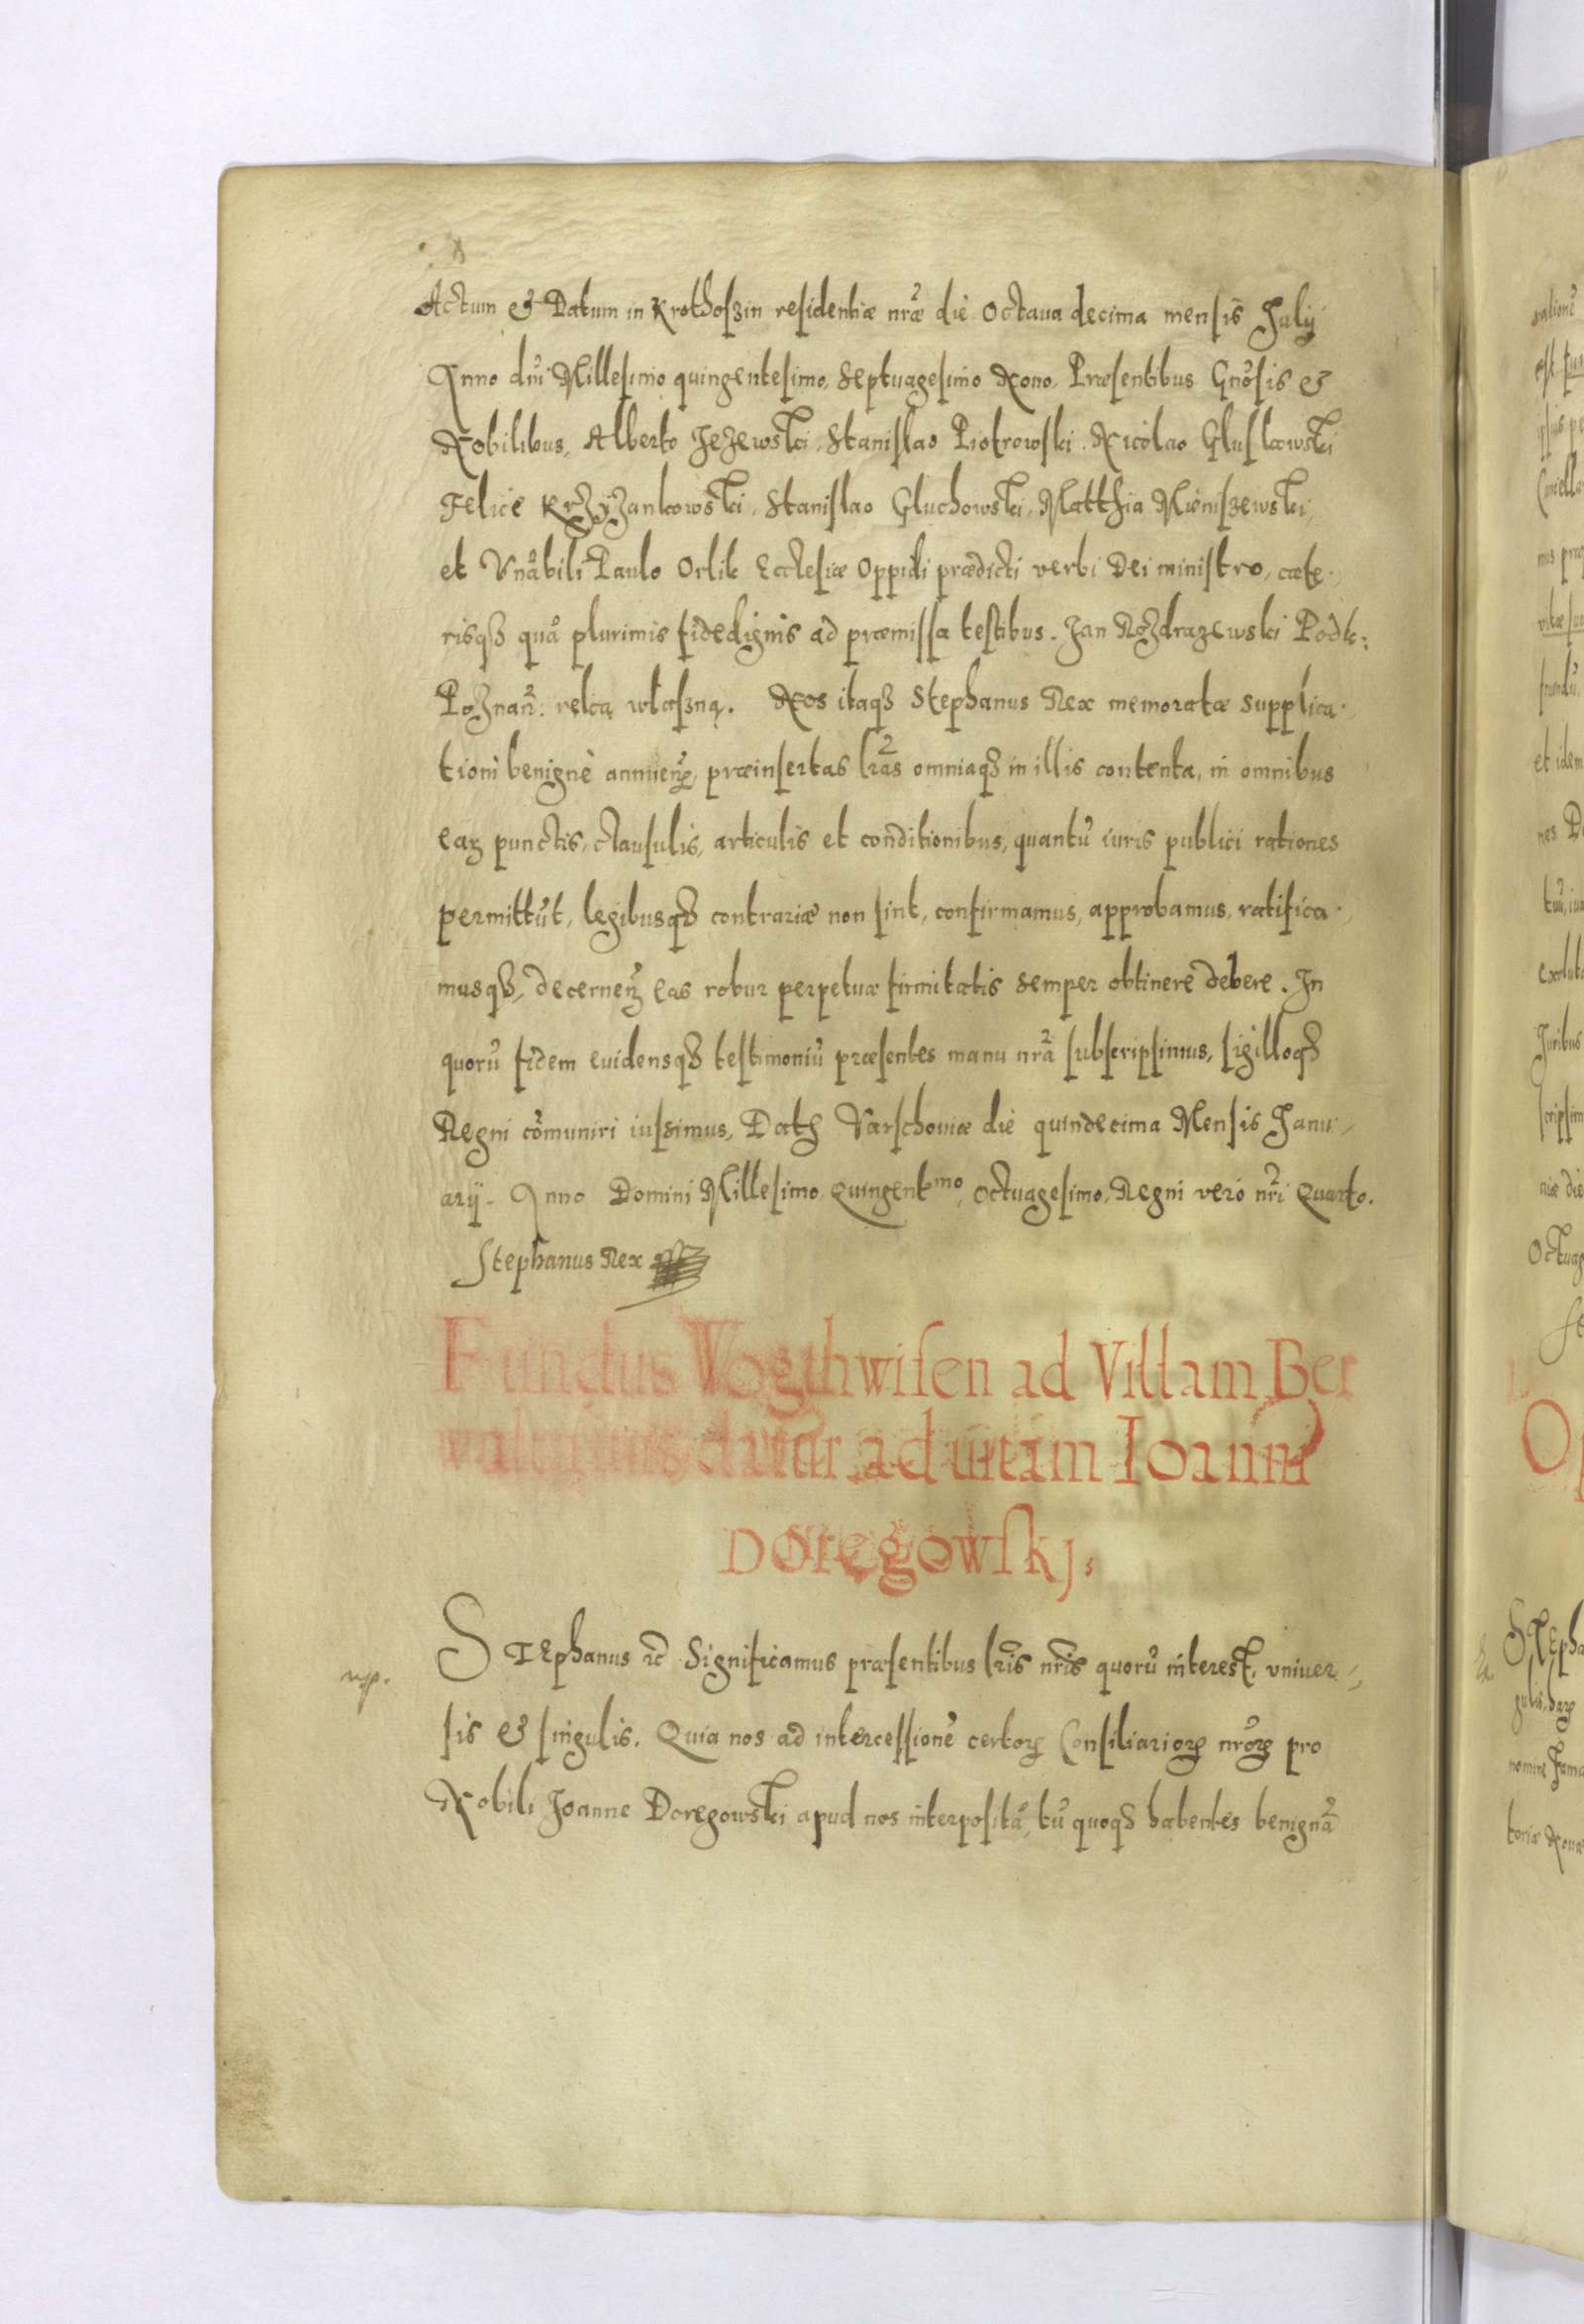 Actum & Datum in Krothoszin residentiæ nr̃æ die Octaua decima mensis July
Anno dñi Millesimo quingentesimo, Septuagesimo Nono, Præsentibus Gnõsis &
Nobilibus, Alberto Jeżewski, Stanislao Piotrowski, Nicolao Gluskowski
Felice Krżyżankowski, Stanislao Gluchowski, Matthia Mieniszewski,
et Vnãbili Paulo Orlik Ecclesiæ Oppidi prædicti verbi Dei ministro, cæte-
risqꝫ quã plurimis fidedignis ad præmissa testibus. Jan Rożdrażewski Podk:
Poznañ. ręką własną. Nos itaqꝫ Stephanus Rex memoratæ supplica-
tioni benignè annuenᵗ, præinsertas lr̃as omniaqꝫ in illis contenta, in omnibus
eaꝝ punctis, clausulis, articulis et conditionibus, quantũ iuris publici rationes
permittũt, legibusqꝫ contrariæ non sint, confirmamus, approbamus, ratifica-
musqꝫ, decernenᵗ eas robur perpetuæ firmitatis semper obtinere debere. In
quorũ fidem euidensqꝫ testimoniũ præsentes manu nr̃a subscripsimus, sigilloqꝫ
Regni cõmuniri iussimus, Datꝫ Varschouiæ die quindecima Mensis Janu-
arij. Anno Domini Millesimo Quingentᵐᵒ, Octuagesimo, Regni vero nr̃i Quarto.
Stephanus Rex
Fundus Wogthwisen ad Villam Ber
datur ad uitam Ioanni
Doręgowskj,
Stephanus ꝛc Significamus præsentibus lr̃is nr̃is quorũ interest, vniuer-
sis & singulis. Quia nos ad intercessionẽ certoꝝ Consiliarioꝝ nr̃oꝝ pro
Nobili Joanne Doregowski apud nos interpositã, tũ quoqꝫ habentes benignã